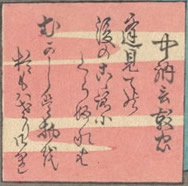 中納言敦忠
逢見ての
後のこゝろに
くらふれは
むかしは物を
おもはさりけり